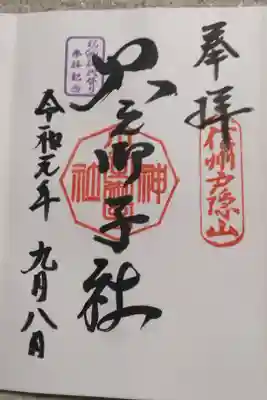 奉拝
信州戸隠山
火之御子社
参拝記念
令和元年 九月八日